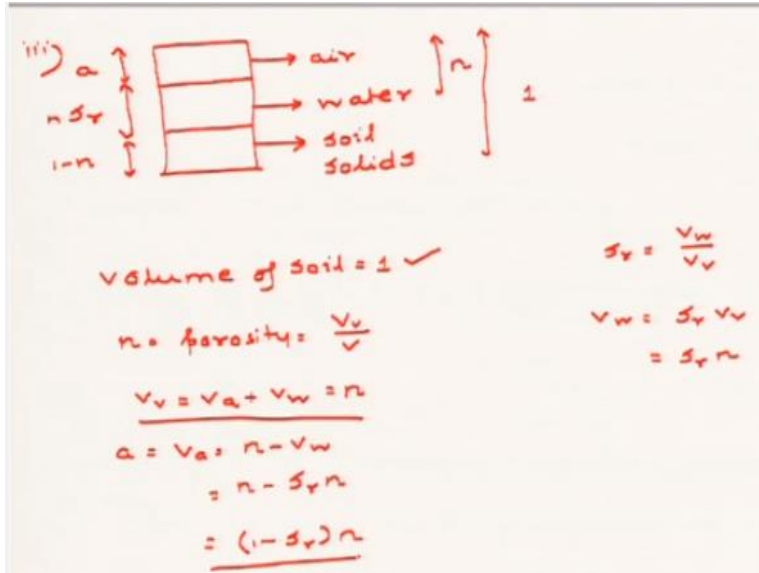 iii)
a → air
n Sr → water n 1
1-n → soil
solids
volume of soil = 1 ✓
n = porosity = Vv/V
Vv = Va + Vw = n
a = Va = n - Vw
= n - Sr n
= (1 - Sr) n
Sr = Vw/Vv
Vw = Sr Vv
= Sr n